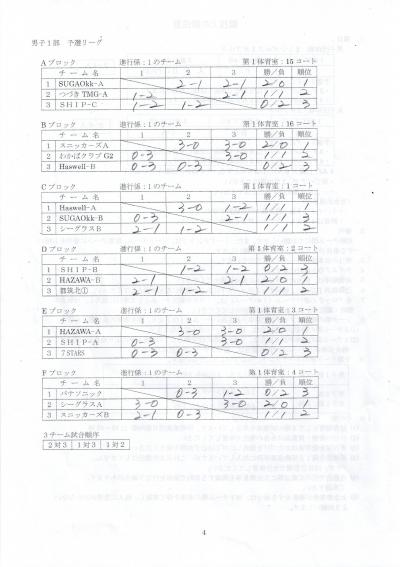 男子1部 予選リーグ
Aブロック 進行係:1のチーム 第1体育室:15コート
チーム名 1 2 3 勝/負 順位
1 SUGAOkk-A 2-1 2-1 2/0 1
2 つづきTMG-A 1-2 2-1 1/1 2
3 SHIP-C 1-2 1-2 0/2 3
Bブロック 進行係:1のチーム 第1体育室:16コート
チーム名 1 2 3 勝/負 順位
1 スニッカーズA 3-0 3-0 2/0 1
2 わかばクラブG2 0-3 3-0 1/1 2
3 Haswell-B 0-3 0-3 0/2 3
Cブロック 進行係:1のチーム 第1体育室:1コート
チーム名 1 2 3 勝/負 順位
1 Haswell-A 3-0 1-2 1/1 1
2 SUGAOkk-B 0-3 2-1 1/1 3
3 シーグラスB 2-1 1-2 1/1 2
Dブロック 進行係:1のチーム 第1体育室:2コート
チーム名 1 2 3 勝/負 順位
1 SHIP-B 1-2 1-2 0/2 3
2 HAZAWA-B 2-1 2-1 2/0 1
3 都筑北① 2-1 1-2 1/1 2
Eブロック 進行係:1のチーム 第1体育室:3コート
チーム名 1 2 3 勝/負 順位
1 HAZAWA-A 3-0 3-0 2/0 1
2 SHIP-A 0-3 3-0 1/1 2
3 7STARS 0-3 0-3 0/2 3
Fブロック 進行係:1のチーム 第1体育室:4コート
チーム名 1 2 3 勝/負 順位
1 パナソニック 0-3 1-2 0/2 3
2 シーグラスA 3-0 3-0 2/0 1
3 スニッカーズB 2-1 0-3 1/1 2
3チーム試合順序
2対3 1対3 1対2
4